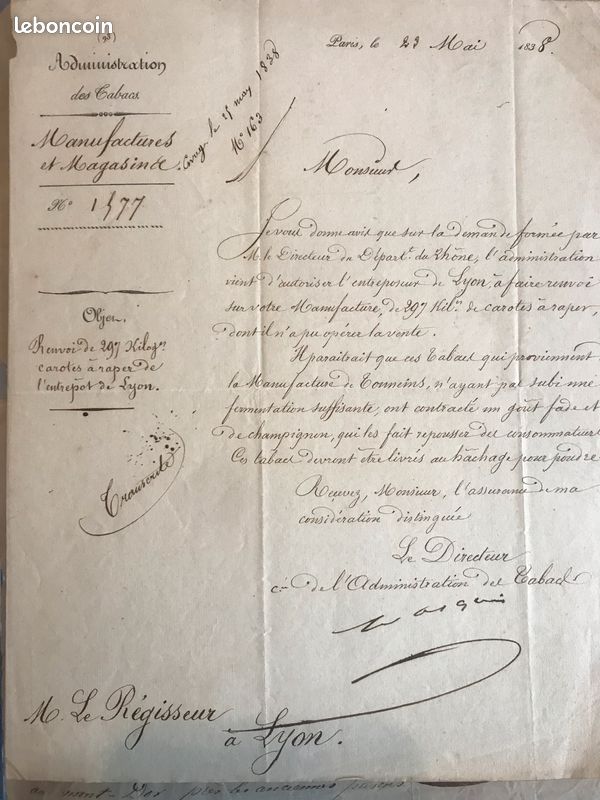 leboncoin
(25)
Administration
des Tabacs.
Manufactures
et Magasins.
N° 1477
Objet.
Renvoi de 297 Kilog.es
carotes à raper de
l'entrepot de Lyon.
Transcrite
le 25 may 1838
N° 163
Paris, le 23 Mai 1838.
Monsieur,
Je vous donne avis que sur la demande formée par
M. le Directeur du Départ.t du Rhône, l'administration
vient d'autoriser l'entreposeur de Lyon à faire renvoi
sur votre Manufacture, de 297 Kil.es de carotes à raper,
dont il n'a pu opérer la vente.
Il paraitrait que ces Tabacs qui proviennent de
la Manufacture de Tonneins, n'ayant pas subi une
fermentation suffisante, ont contracté un goût fade et
de champignon, qui les fait repousser des consommateurs
Ces tabacs devront être livrés au hâchage pour poudre
Recevez, Monsieur, l'assurance de ma
considération distinguée
Le Directeur
de l'Administration des Tabacs
M. Le Régisseur
à Lyon.